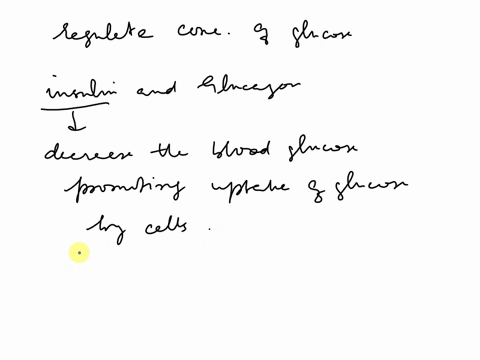 regulate conc. of glucose
insulin and Glucagon
decrease the blood glucose
promoting uptake of glucose
by cells.